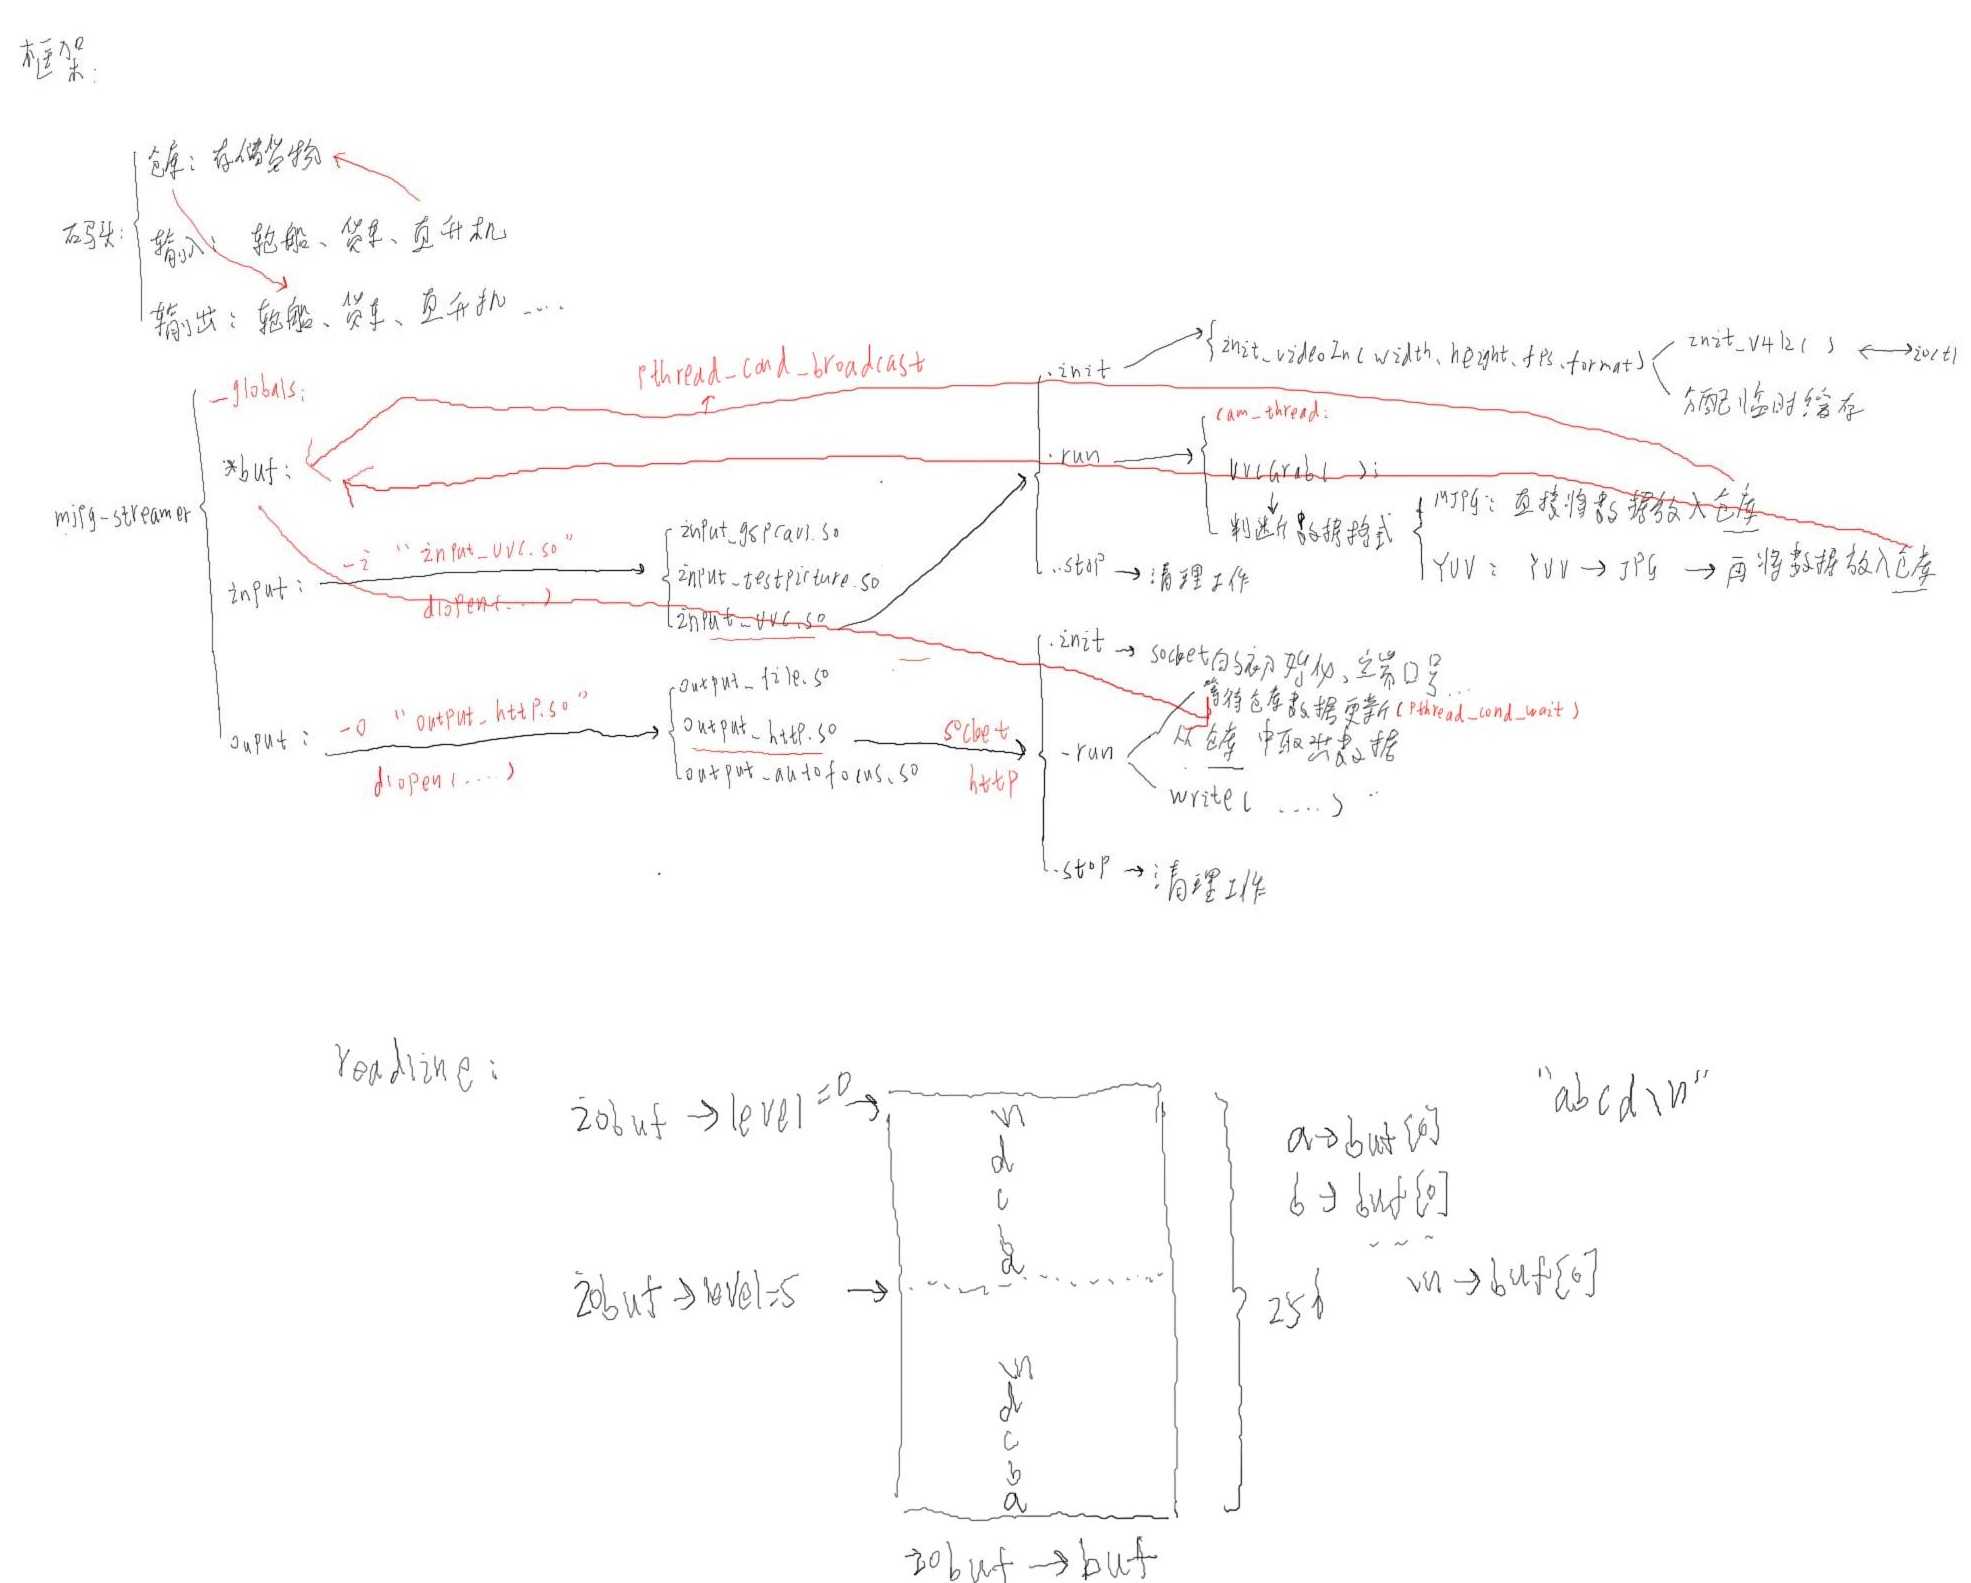 框架:
码头:
仓库: 存储货物
输入: 轮船、货车、直升机
输出: 轮船、货车、直升机 ....
mjpg-streamer
_globals:
*buf:
input:
ouput:
pthread_cond_broadcast
-i "input_uvc.so"
dlopen(...)
-o "output_http.so"
dlopen(....)
input_gspcav1.so
input_testpicture.so
input_uvc.so
output_file.so
output_http.so
output_autofocus.so
socket
http
.init
init_videoIn(width、height、fps、format)
init_v4l2( )
ioctl
分配临时缓存
.run
cam_thread:
uvcGrab( );
判断数据格式
MJPG: 直接将数据放入仓库
YUV: YUV → JPG → 再将数据放入仓库
.stop → 清理工作
.init → socket的初始化、端口号...
-run
等待仓库数据更新(pthread_cond_wait)
从仓库中取出数据
write( ....)
.stop → 清理工作
readline:
iobuf → level=0
\n
d
c
b
a
iobuf → level=5
\n
d
c
b
a
iobuf → buf
256
"abcd\n"
a → buf[0]
b → buf[0]
\n → buf[0]